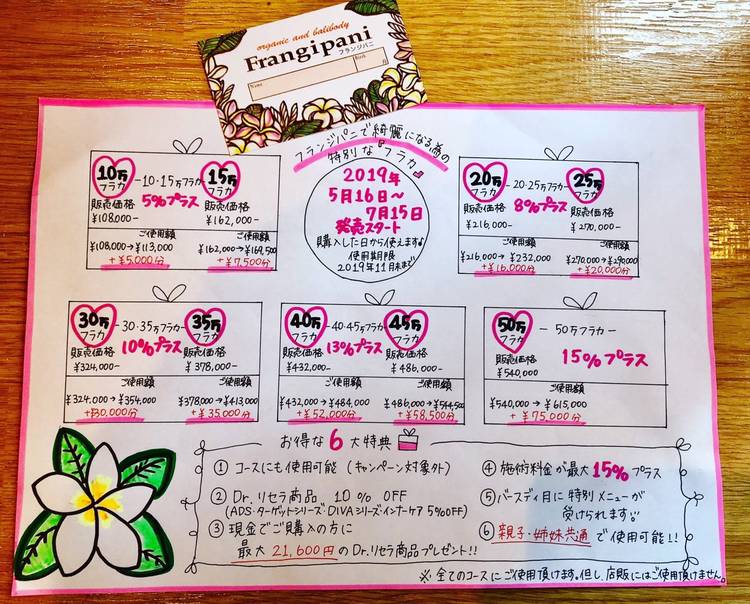 organic and balibody
Frangipani
フランジパニ
Name
フランジパニで綺麗になる為の
特別な『フラカ』
2019年
5月16日〜
7月15日
発売スタート
購入した日から使えます
使用期限
2019年11月末まで
10万
フラカ
-10・15万フラカ-
5%プラス
15万
フラカ
販売価格
¥108,000-
販売価格
¥162,000-
ご使用額
¥108,000→¥113,000
+¥5,000分
ご使用額
¥162,000→¥169,500
+¥7,500分
20万
フラカ
-20・25万フラカ-
8%プラス
25万
フラカ
販売価格
¥216,000-
販売価格
¥270,000-
ご使用額
¥216,000→¥232,000
+¥16,000分
ご使用額
¥270,000→¥290,000
+¥20,000分
30万
フラカ
-30・35万フラカ-
10%プラス
35万
フラカ
販売価格
¥324,000-
販売価格
¥378,000-
ご使用額
¥324,000→¥354,000
+¥30,000分
ご使用額
¥378,000→¥413,000
+¥35,000分
40万
フラカ
-40・45万フラカ-
13%プラス
45万
フラカ
販売価格
¥432,000-
販売価格
¥486,000-
ご使用額
¥432,000→¥484,000
+¥52,000分
ご使用額
¥486,000→¥544,500
+¥58,500分
50万
フラカ
-50万フラカ-
15%プラス
販売価格
¥540,000
ご使用額
¥540,000→¥615,000
+¥75,000分
お得な6大特典
① コースにも使用可能(キャンペーン対象外)
② Dr.リセラ商品 10%OFF
(ADS・ターゲットシリーズDIVAシリーズ・インナーケア5%OFF)
③ 現金でご購入の方に
最大21,600円のDr.リセラ商品プレゼント!!
④ 施術料金が最大15%プラス
⑤ バースディ月に特別メニューが
受けられます!!
⑥ 親子・姉妹共通で使用可能!!
※全てのコースにご使用頂けます。但し、店販にはご使用頂けません。